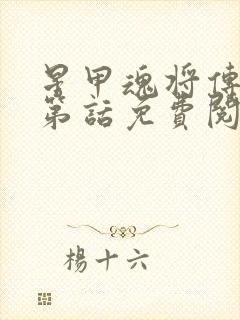 星甲魂將傳
第話免費閱
楊十六